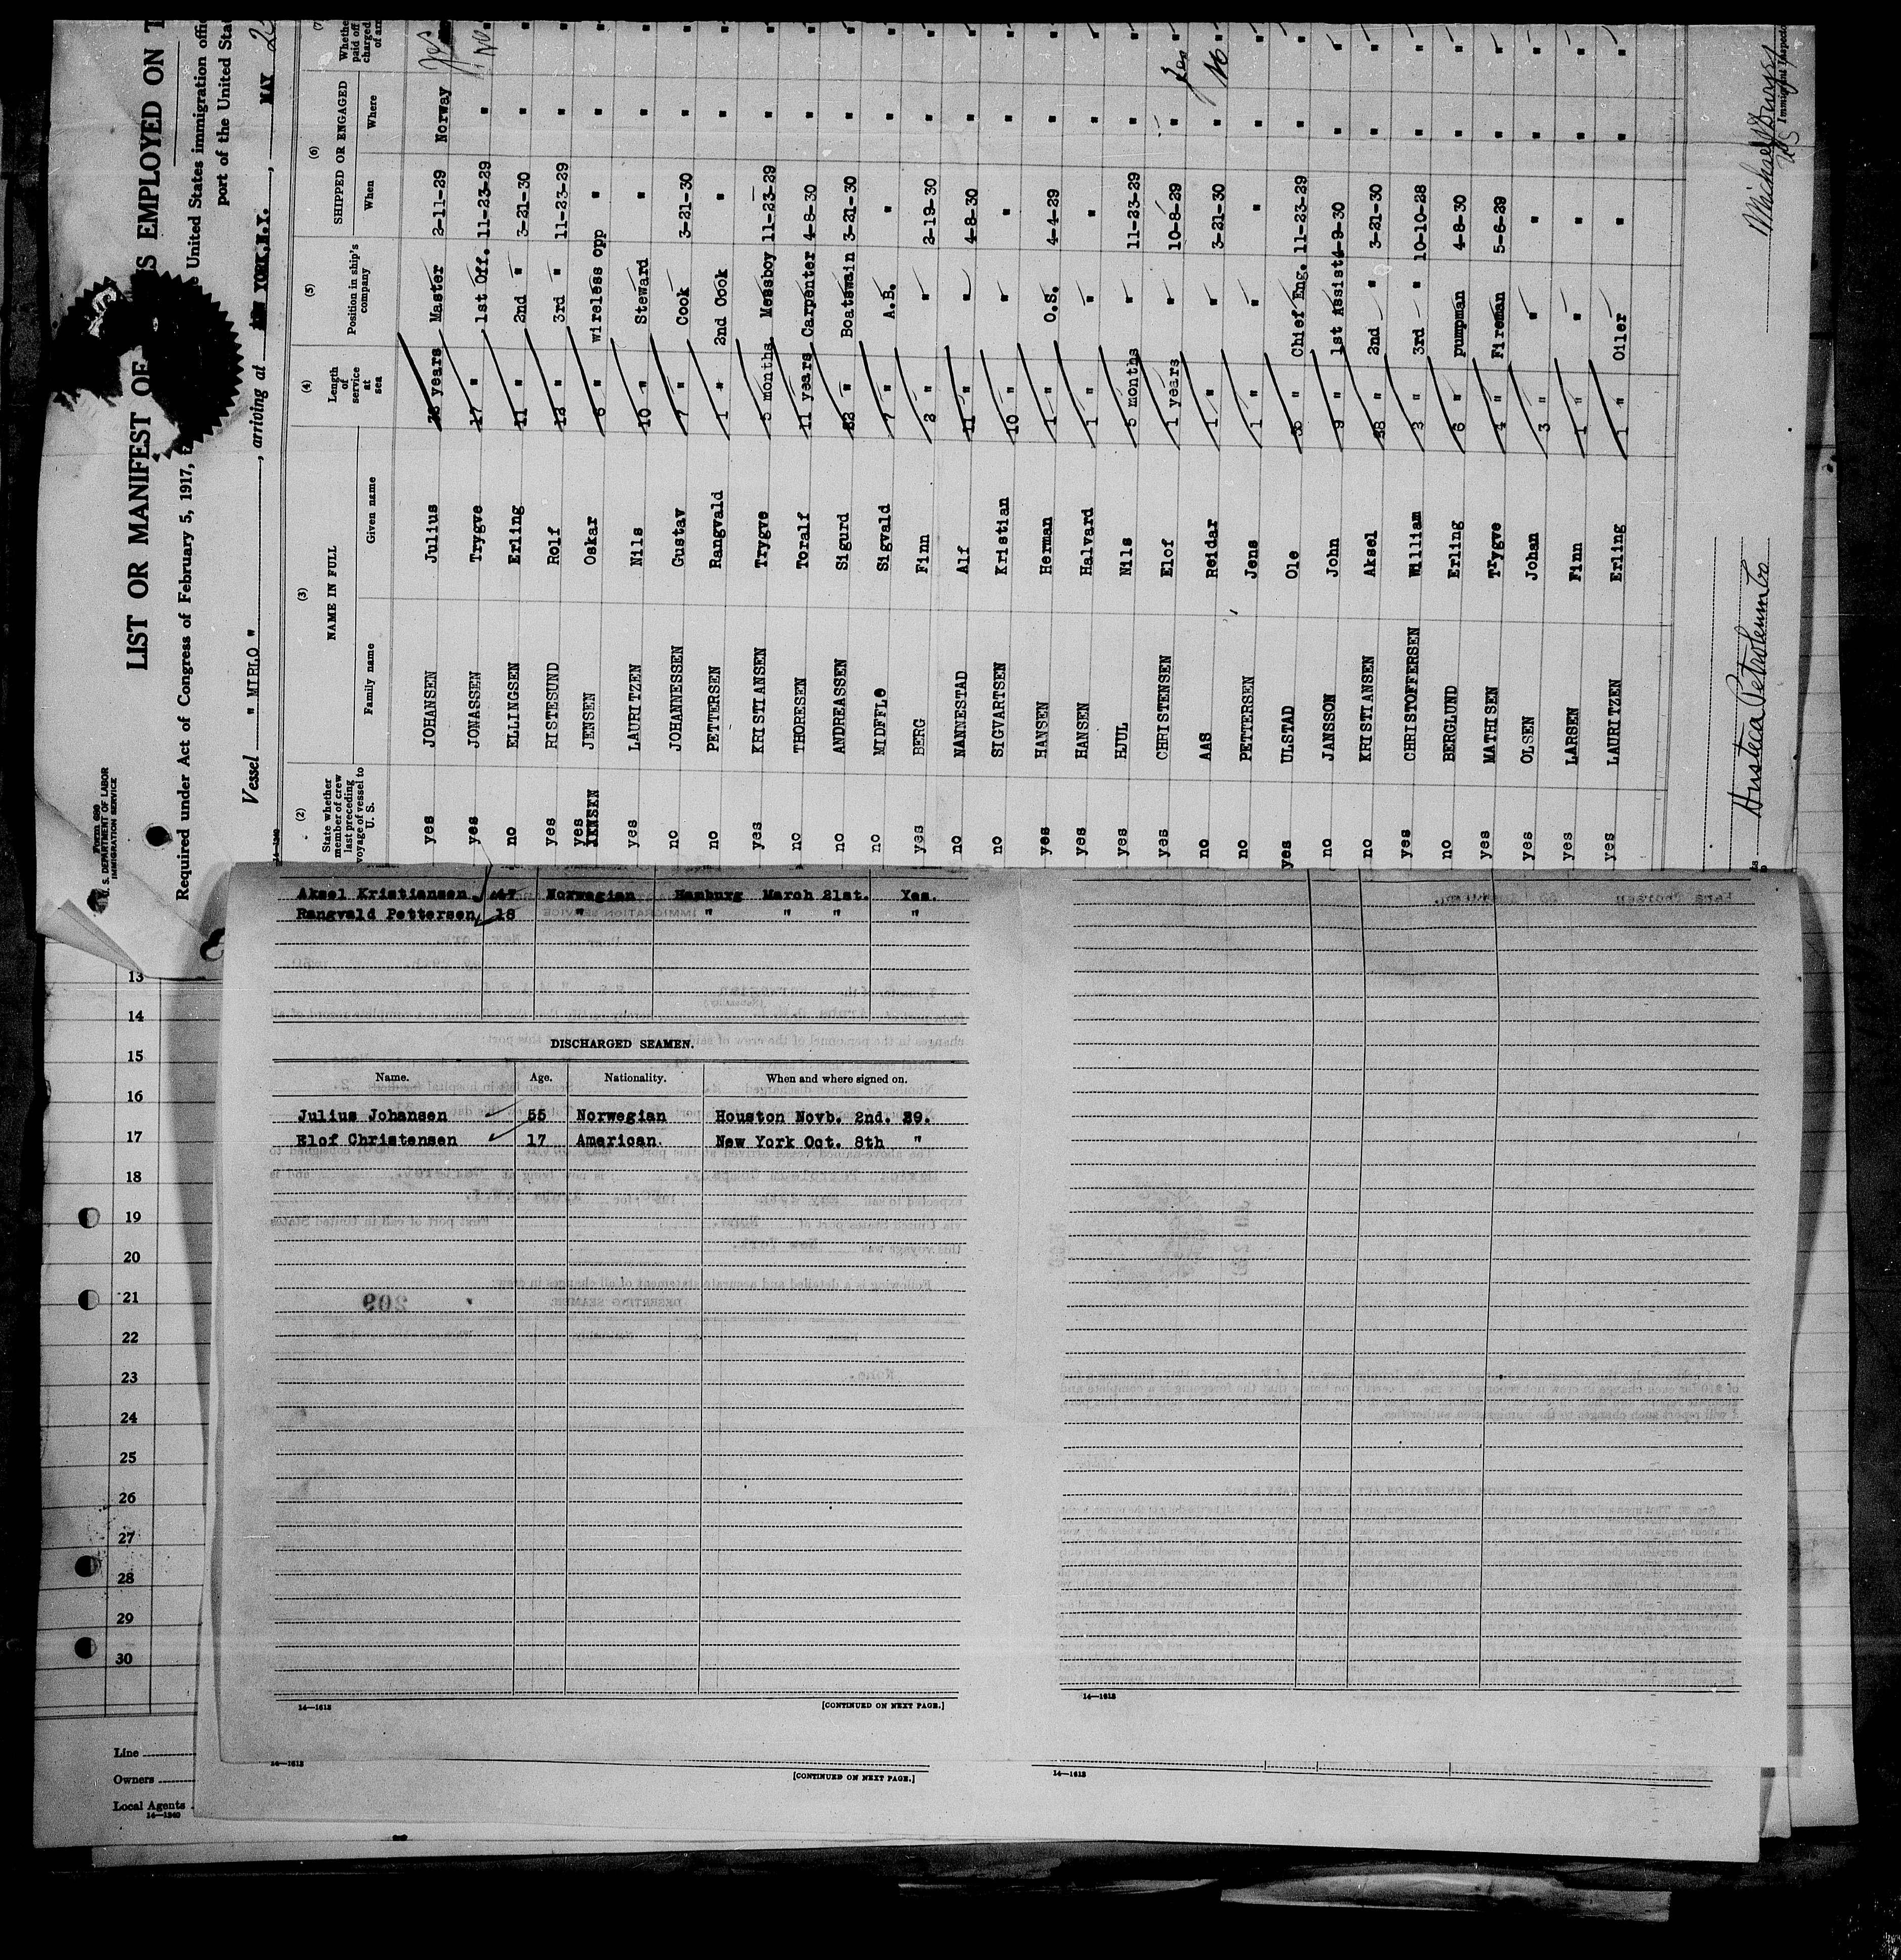 Form 680
U. S. DEPARTMENT OF LABOR
IMMIGRATION SERVICE
LIST OR MANIFEST OF
S EMPLOYED ON T
Required under Act of Congress of February 5, 1917,
United States immigration offi
port of the United Sta
Vessel " MIRLO " , arriving at NEW YORK,N.Y. , MAY
14-1240
(2) (3) (4) (5) (6) (7)
State whether member of crew last preceding voyage of vessel to U. S. NAME IN FULL Length of service at sea Position in ship's company SHIPPED OR ENGAGED Whethe paid off charged of arr
Family name Given name When Where
yes JOHANSEN Julius years Master 2-11-29 Norway Yes
yes JONASSEN Trygve 17 " 1st Off. 11-23-29 " No
no ELLINGSEN Erling 11 " 2nd " 3-21-30 " "
yes RISTESUND Rolf 13 " 3rd " 11-23-29 " "
yes JENSEN Oskar 6 " wireless opp " " "
JENSEN
yes LAURITZEN Nils 10 " Steward " " "
no JOHANNESSEN Gustav 7 " Cook 3-21-30 " "
no PETTERSEN Rangvald 1 " 2nd Cook " " "
yes KRISTIANSEN Trygve 5 months Messboy 11-23-29 " "
no THORESEN Toralf 11 years Carpenter 4-8-30 " "
no ANDREASSEN Sigurd 22 " Boatswain 3-21-30 " "
no MIDFFLe Sigvald 7 " A.B. " " "
yes BERG Finn 2 " " 2-19-30 " "
no NANNESTAD Alf 11 " " 4-8-30 " "
no SIGVARTSEN Kristian 10 " " " " "
yes HANSEN Herman 1 " O.S. 4-4-29 " "
yes HANSEN Halvard 1 " " " " "
yes HJUL Nils 5 months " 11-23-29 " "
yes CHRISTENSEN Elof 1 years " 10-8-29 " Yes
no AAS Reidar 1 " " 3-21-30 " No
no PETTERSEN Jens 1 " " " " "
yes ULSTAD Ole " Chief Eng. 11-23-29 " "
no JANSSON John 9 " 1st Assist 4-9-30 " "
no KRISTIANSEN Aksel 28 " 2nd " 3-21-30 " "
yes CHRISTOFFERSEN William 3 " 3rd " 10-10-28 " "
no BERGLUND Erling 6 " pumpman 4-8-30 " "
yes MATHISEN Trygve 4 " Fireman 5-6-29 " "
yes OLSEN Johan 3 " " " " "
yes LARSEN Finn 1 " " " " "
yes LAURITZEN Erling 1 " Oiler " " "
Huasteca Petroleum Co
Immigrant Inspecto
Aksel Kristiansen 47 Norwegian Hamburg March 21st. Yes.
Rangvald Pettersen 18 " " " " "
DISCHARGED SEAMEN.
Name. Age. Nationality. When and where signed on.
Julius Johansen 55 Norwegian Houston Novb. 2nd. 29.
Elof Christensen 17 American. New York Oct. 8th "
14—1613 [CONTINUED ON NEXT PAGE.]
14—1613
14—1613 [CONTINUED ON NEXT PAGE.]
14—1613
13
14
15
16
17
18
19
20
21
22
23
24
25
26
27
28
29
30
Line
Owners
Local Agents
14—1240